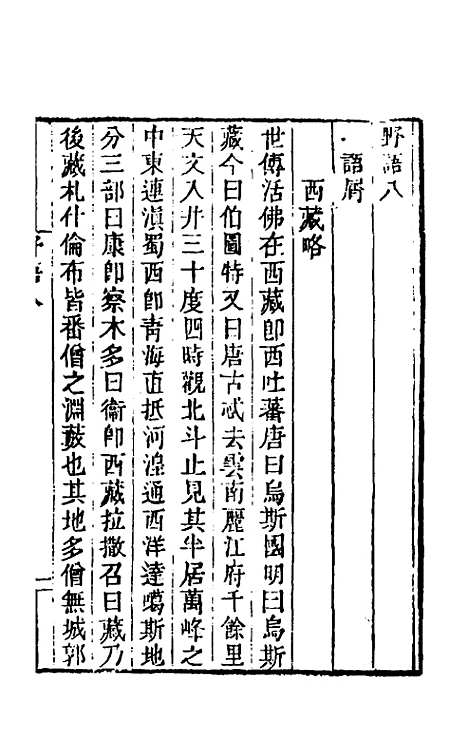 野語八
語屑
西藏略
世傳活佛在西藏卽西吐蕃唐曰烏斯國明曰烏斯
藏今曰伯圖特又曰唐古忒去雲南麗江府千餘里
天文入井三十度四時觀北斗止見其半居萬峰之
中東連滇蜀西卽靑海直抵河湟通西洋達噶斯地
分三部曰康卽察木多曰衞卽西藏拉撒召曰藏乃
後藏札什倫布皆番僧之淵藪也其地多僧無城郭